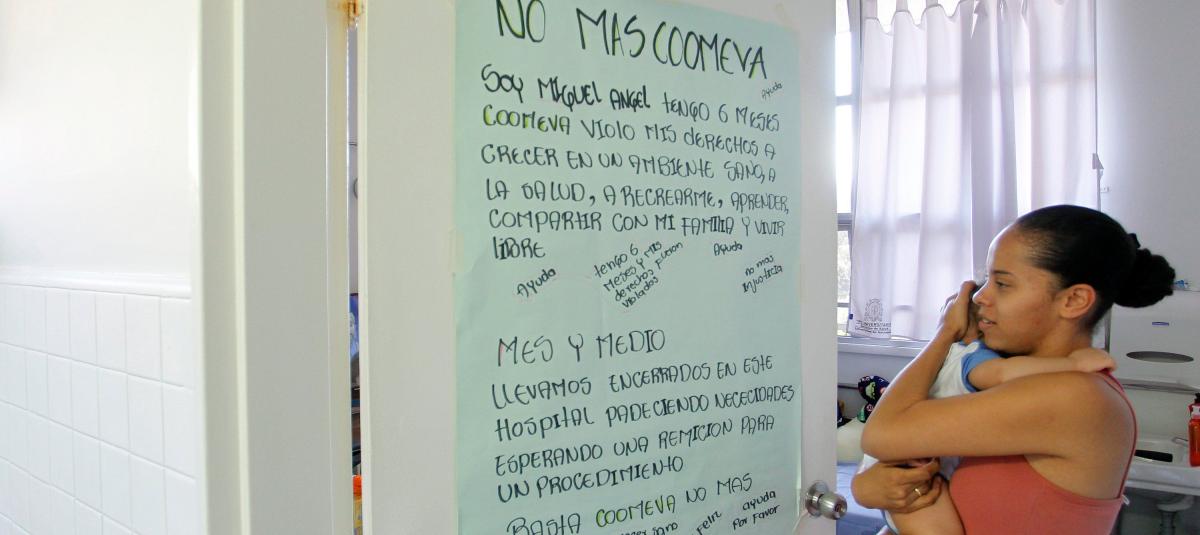 NO MAS COOMEVA
Ayuda
SOY MIGUEL ANGEL TENGO 6 MESES
COOMEVA VIOLO MIS DERECHOS A
CRECER EN UN AMBIENTE SANO, A
LA SALUD, A RECREARME, APRENDER,
COMPARTIR CON MI FAMILIA Y VIVIR
LIBRE
Ayuda
tengo 6
Meses y Mis
derechos fueron
violados
Ayuda
no mas
Injusticia
MES Y MEDIO
LLEVAMOS ENCERRADOS EN ESTE
HOSPITAL PADECIENDO NECECIDADES
ESPERANDO UNA REMICION PARA
UN PROCEDIMIENTO
BASTA COOMEVA NO MAS
ayuda
Por Favor